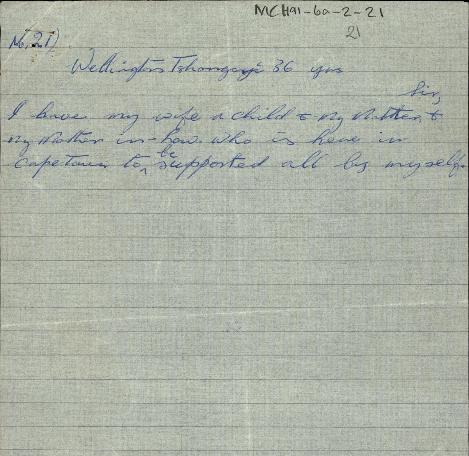 MCH91-6a-2-21
21
No. 21)
Wellington Tshangayi 36 yrs
Sir,
I have my wife a child & my Mother, &
my Mother in-haw who is here in
capetown to be supported all by myself.